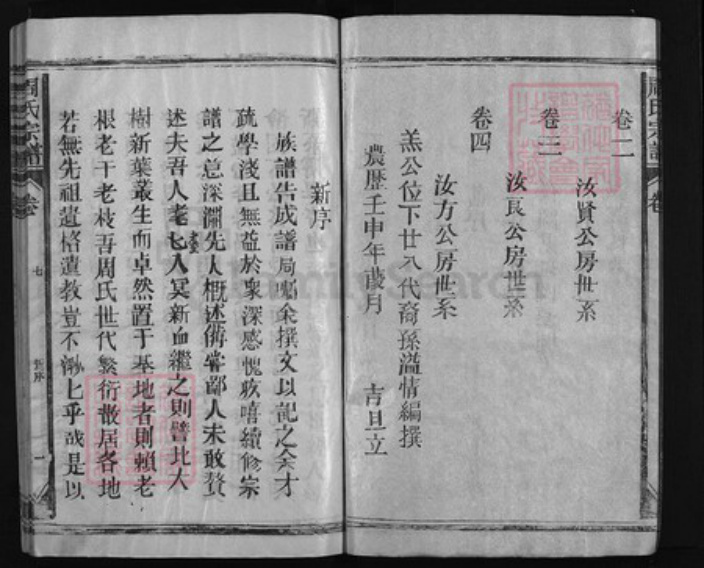 周氏宗譜
卷二
汝賢公房世系
卷三
汝良公房世系
卷四
汝方公房世系
羔公位下廿八代裔孫溢情編撰
農歷壬申年歲月
吉旦立
新序
族譜告成譜局囑余撰文以記之余才
疏學淺且無益於衆深感愧疚嘻續修宗
譜之意深淵先人概述備嘗鄙人未敢贅
述夫吾人老七入冥新血繼之則譬北大
樹新葉叢生而卓然置于基地者則賴老
根老干老枝吾周氏世代繁衍散居各地
若無先祖遺格遺教豈不渺七乎哉是以
周氏宗譜
卷
七
新序
一
FamilySearch